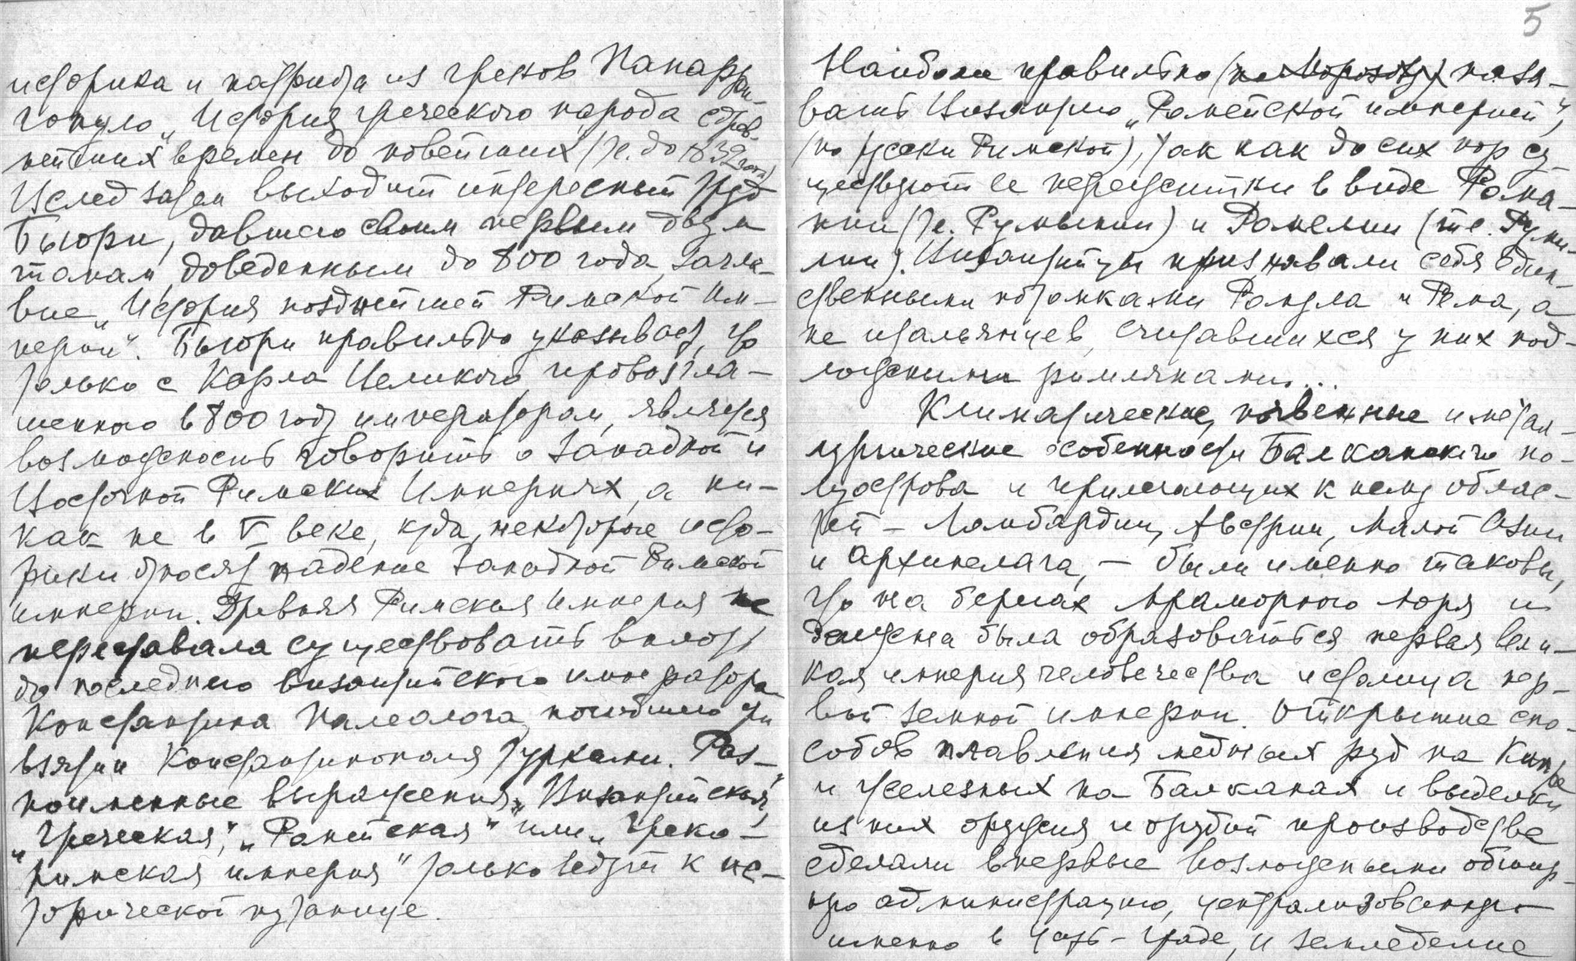 историка и патриота из греков Папарри-
гопуло „История греческого народа с древ-
нейших времен до новейших (т.е. до 1832 года)
Вслед затем выходит интересный труд
Бьюри, давшего своим первым двум
томам, доведенным до 800 года, загла-
вие „История позднейшей Римской им-
перии“. Бьюри правильно указывает, что
только с Карла Великого, провозгла-
шенного в 800 году императором, является
возможность говорить о Западной и
Восточной Римских Империях, а ни-
как не в V веке, куда некоторые исто-
рики относят падение Западной Римской
империи. Древняя Римская Империя не
переставала существовать вплоть
до последнего византийского императора
Константина Палеолога, погибшего при
взятии Константинополя турками. Раз-
ноименные выражения: „Византийская“,
„Греческая“, „Ромейская“ или „Греко-
римская империя“ только ведут к ис-
торической путанице.
5
Наиболее правильно назы-
вать Византию „Ромейской империей“,
(по русски Римской), так как до сих пор су-
ществуют ее пережитки в виде Рома-
нии (т.е. Румынии) и Ромелии (т.е. Руми-
лии). Византийцы признавали себя един-
ственными потомками Ромула и Рема, а
не итальянцев, считавшихся у них под-
ложными римлянами...
Климатические, почвенные и метал-
лургические особенности Балканского по-
луострова и прилегающих к нему облас-
тей – Ломбардии, Австрии, Малой Азии
и Архипелага, – были именно таковы,
что на берегах Мраморного моря и
должна была образоваться первая вели-
кая империя человечества и столица пер-
вой земной империи. Открытие спо-
собов плавления медных руд на Кипре
и железных на Балканах и выделки
из них оружия и орудий производства
сделали впервые возможными обшир-
ную администрацию, централизованную
именно в Царь-Граде, и земледелие